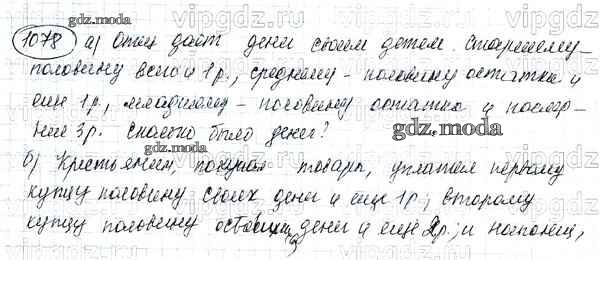 1078 а) Отец даёт день своим детям. Старшему -
половину всего и 1 р., среднему - половину остатка и
еще 1 р., младшему - половину остатка и послед-
ние 3 р. Сколько было денег?
б) Крестьянин, покупая товары, уплатил первому
купцу половину своих денег и еще 1 р.; второму
купцу половину оставших денег и ещё 2 р.; и наконец,
gdz.moda
gdz.moda
gdz.moda
vipgdz